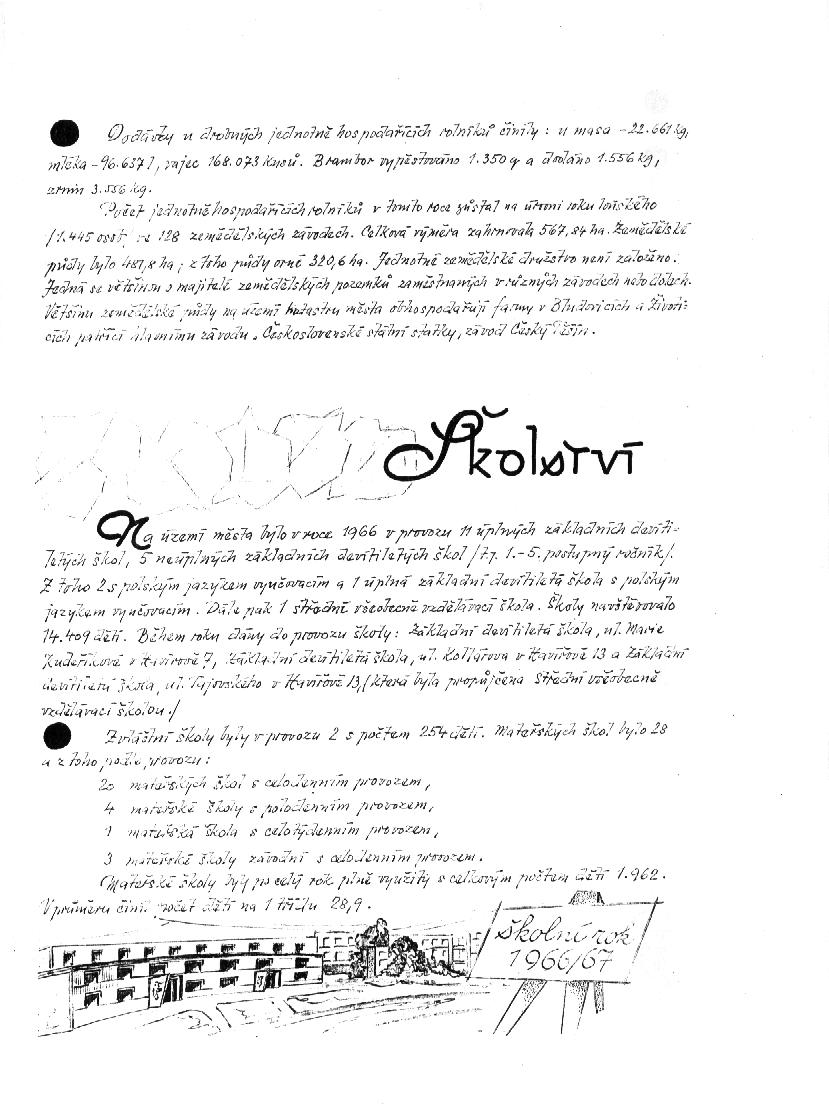 Dodávky u drobných jednotně hospodařících rolníků činily: u masa -22.661 kg,
mléka -96.637 l, vajec 168.073 kusů. Brambor vypěstováno 1.350 q a dodáno 1.556 kg,
zrnin 3.556 kg.
Počet jednotně hospodařících rolníků v tomto roce zůstal na úrovni roku loňského
/1.445 osob/ se 128 zemědělských závodech. Celková výměra zahrnovala 567,84 ha. Zemědělské
půdy bylo 487,8 ha, z toho půdy orné 320,6 ha. Jednotné zemědělské družstvo není založeno.
Jedná se většinou o majitelé zemědělských pozemků zaměstnaných v různých závodech nebo dolech.
Většinu zemědělské půdy na území katastru města obhospodařují farmy v Bludovicích a Životi-
cích patřící hlavnímu závodu. Československé státní statky, závod Český Těšín.
Školství
Na území města bylo v roce 1966 v provozu 11 úplných základních devíti-
letých škol, 5 neúplných základních devítiletých škol /tj. 1.-5. postupný ročník/.
Z toho 2 s polským jazykem vyučovacím a 1 úplná základní devítiletá škola s polským
jazykem vyučovacím. Dále pak 1 střední všeobecně vzdělávací škola. Školy navštěvovalo
14.409 dětí. Během roku dány do provozu školy: Základní devítiletá škola, ul. Marie
Kudeříkové v Havířově 7, Základní devítiletá škola, ul. Kollárova v Havířově 13 a Základní
devítiletá škola, ul. Tajovského v Havířově 13,/která byla propůjčena Střední všeobecně
vzdělávací školou./
Zvláštní školy byly v provozu 2 s počtem 254 dětí. Mateřských škol bylo 28
a z toho podle provozu:
20 mateřských škol s celodenním provozem,
4 mateřské školy s polodenním provozem,
1 mateřská škola s celotýdenním provozem,
3 mateřské školy závodní s celodenním provozem.
Mateřské školy byly po celý rok plně využity s celkovým počtem dětí 1.962.
V průměru činil počet dětí na 1 třídu 28,9.
školní rok
1966/67